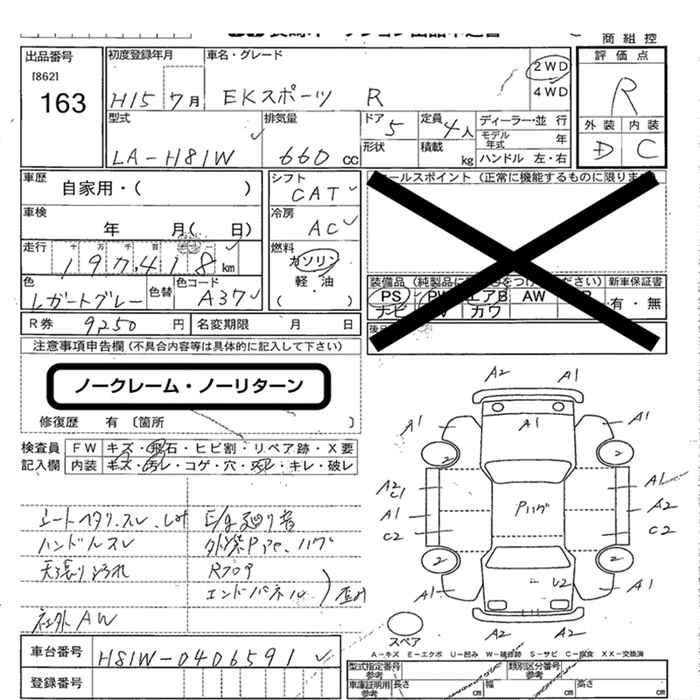 商組控
出品番号
[862]
163
初度登録年月
H15 7月
車名・グレード
EKスポーツ R
2WD
4WD
評価点
R
外装 内装
D C
型式
LA-H81W
排気量
660 cc
ドア 5
形状
定員 4人
積載 kg
ディーラー・並行
モデル年式 年
ハンドル 左・右
車歴
自家用・( )
車検
年 月( 日)
走行
197,418 km
色
レガートグレー
色替
色コード
A37
シフト
CAT
冷房
AC
燃料
ガソリン
軽油
( )
セールスポイント (正常に機能するものに限ります
装備品
新車保証書
PS PW エアB AW
ナビ カワ
有・無
R券 9250円
名変期限 月 日
注意事項申告欄 (不具合内容等は具体的に記入して下さい)
ノークレーム・ノーリターン
修復歴 有 〔箇所 〕
検査員記入欄
FW キズ・飛石・ヒビ割・リペア跡・X要
内装 キズ・汚レ・コゲ・穴・スレ・キレ・破レ
シートヘタリ、スレ
E/g廻り音
ハンドルスレ
天張り汚れ
エンドパネル
社外AW
A2 A1
A1 A1 A1
2 2
A2
C1
A1
C2
Pハゲ
A1
A2
C2
2 2
U2
A1 A1
A2 A2
スペア
A-キズ E-エクボ U-凹み W-補修跡 S-サビ C-腐食 XX-交換済
車台番号
H81W-0406591
登録番号
型式指定番号
参考
類別区分番号
参考
車庫証明用
参考
長さ cm
幅 cm
高さ cm